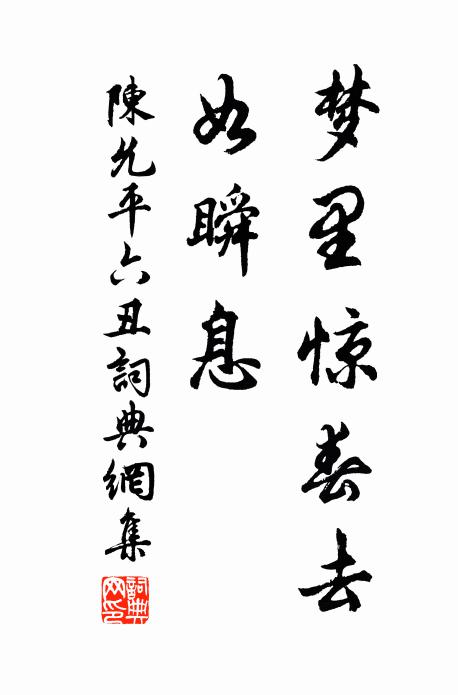 梦里惊春去
如瞬息
陳允平六丑詞典網集
詞典网印